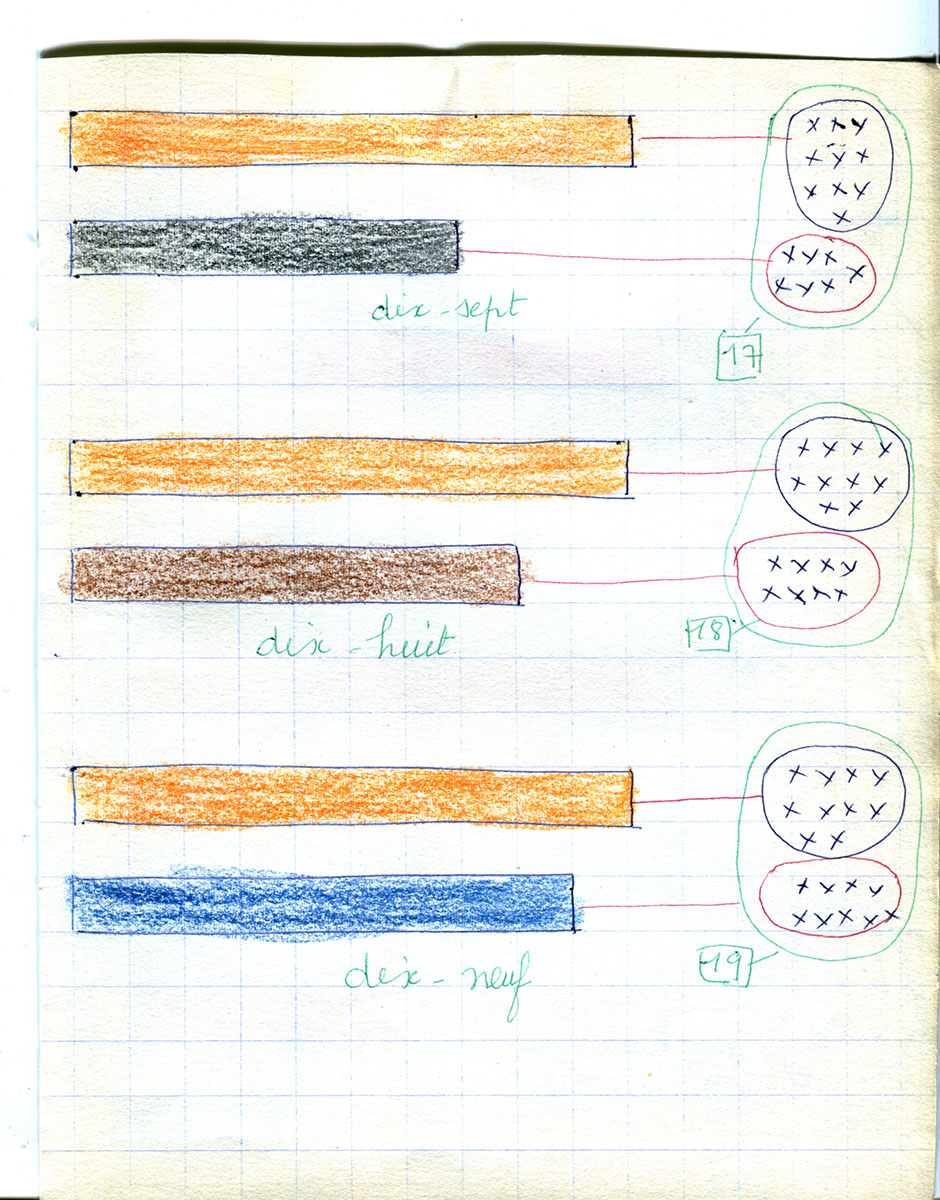 dix-sept
17
dix-huit
18
dix-neuf
19